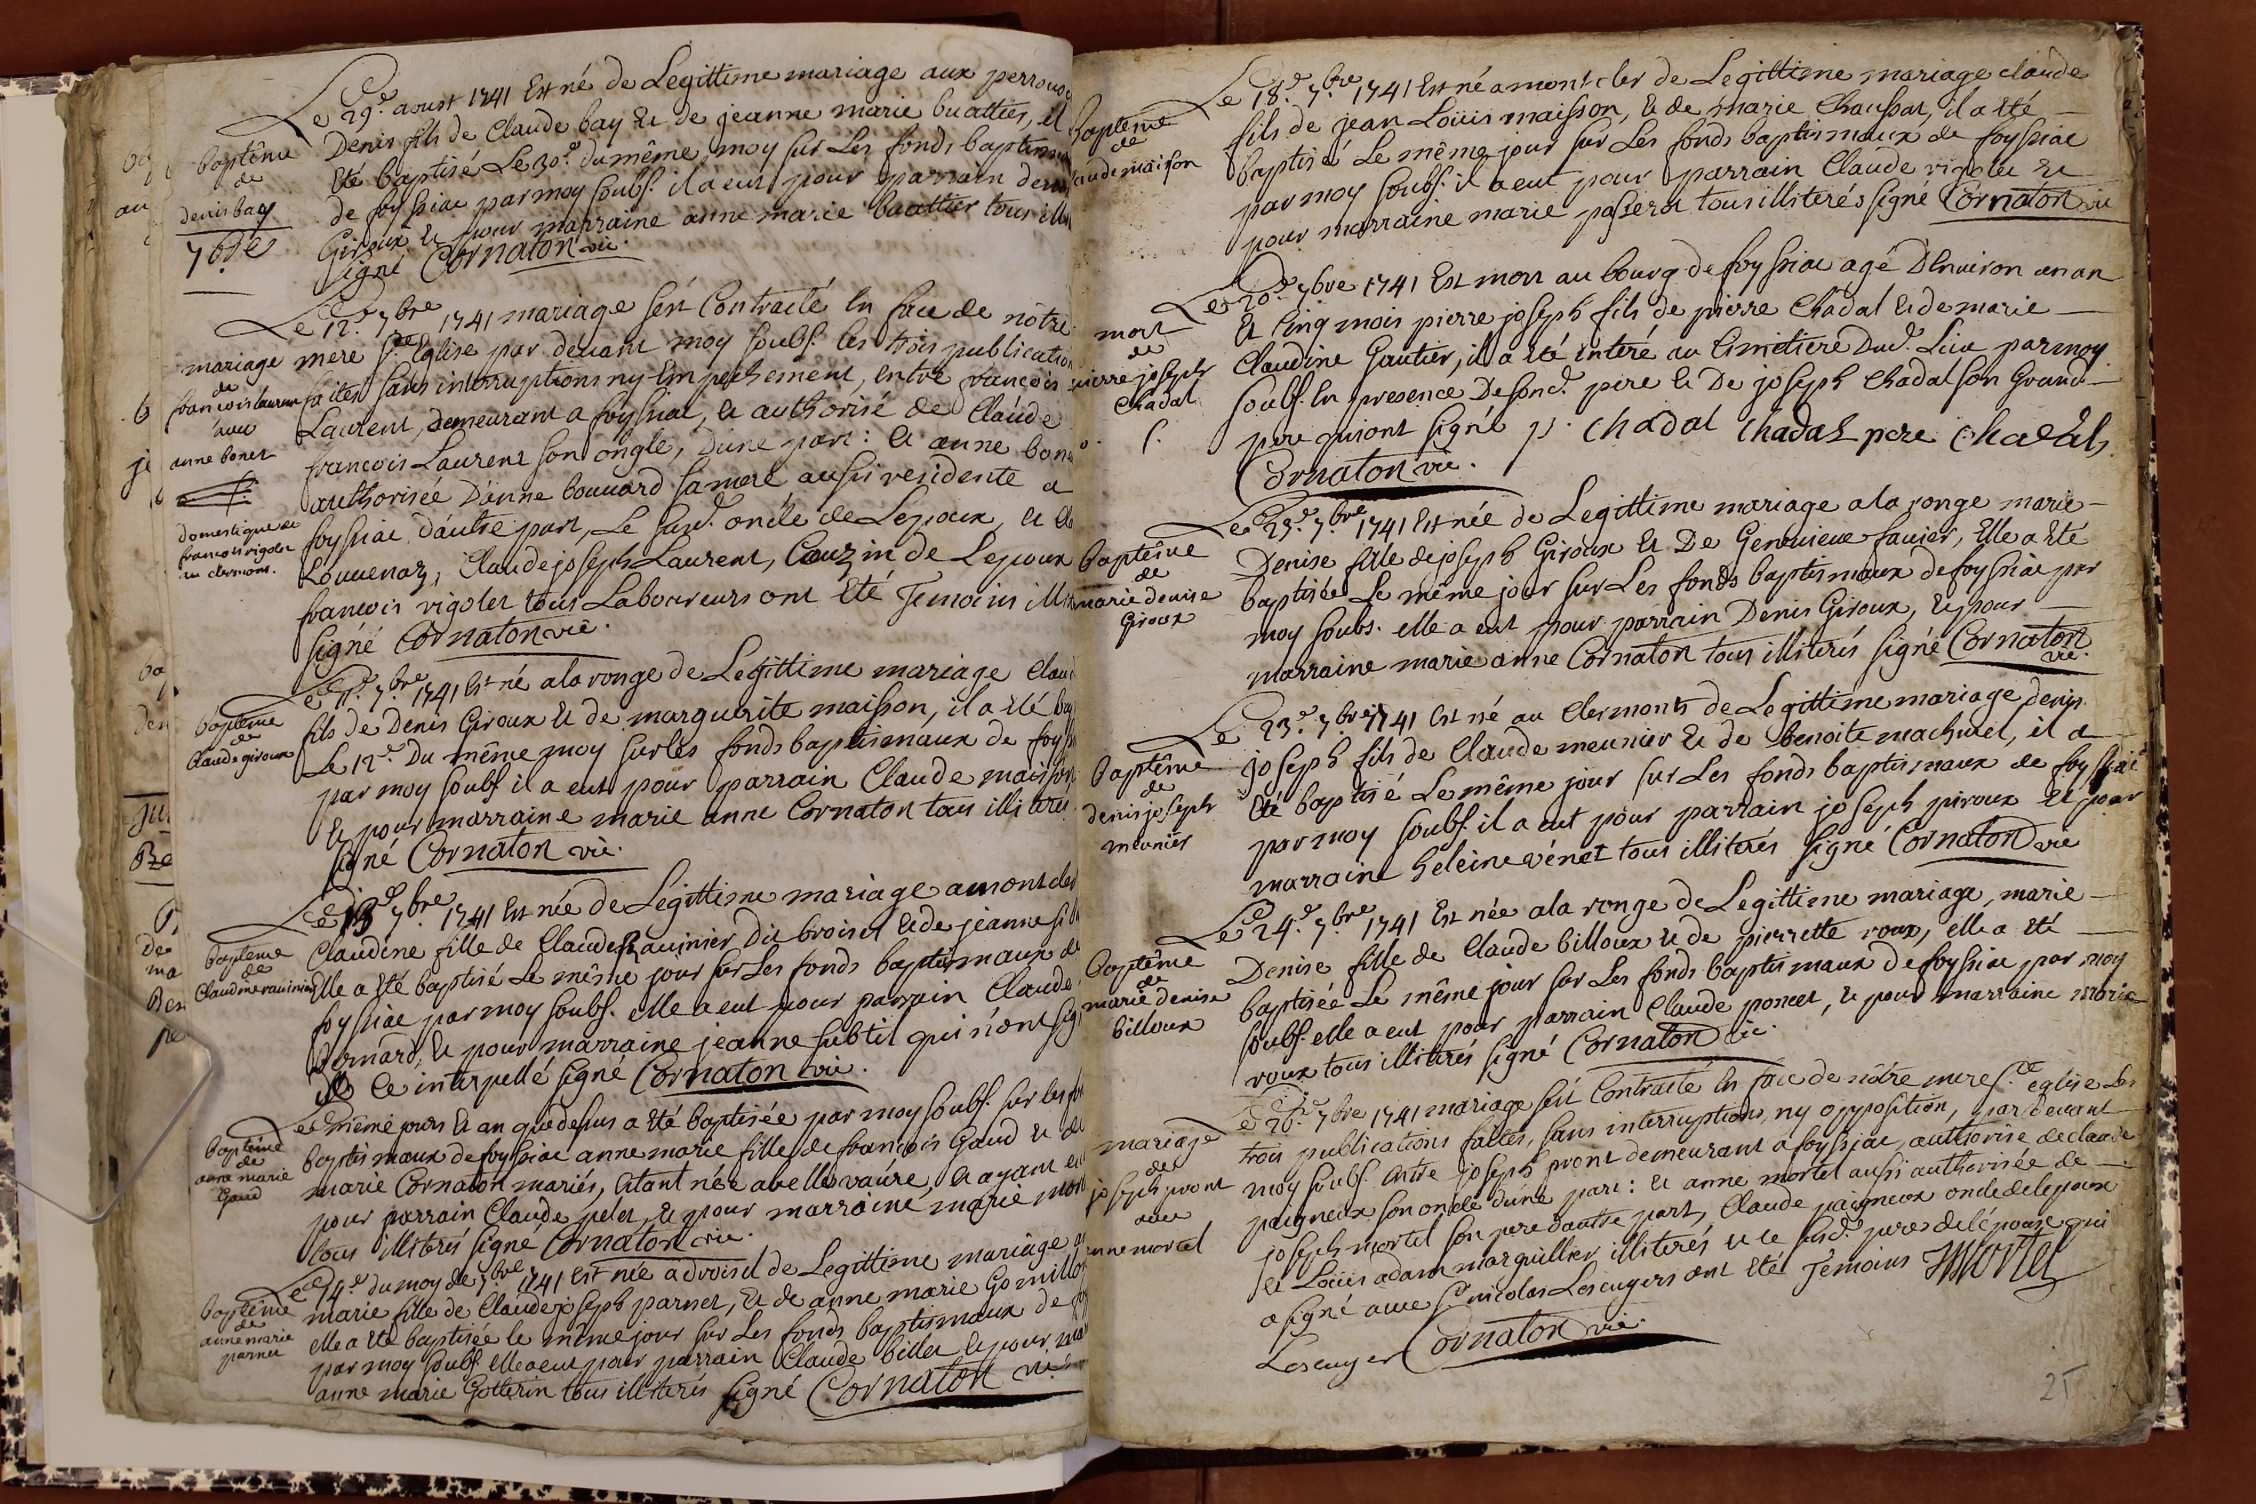 Le 29.e aoust 1741 Est né de Legittime mariage aux
Denis fils de Claude bay & de jeanne marie buattier, il
Eté baptisé Le 30.e du même moy sur Les fonds
de foyssiac par moy soubs. il a eut pour parrain
Giroux & pour marraine anne marie buattier tous
signé Cornaton vic.
baptême
de
denis bay
7bre
Le 12.e 7bre 1741 mariage fut Contracté En face de nôtre
mere s.te Eglise par devant moy soubs. les trois
faites sans interruptions ny Empechement, entre françois
Laurent, Demeurant a foyssiac, & authorisé de Claude
françois Laurent son ongle, d'une part: & anne
authorisée D'anne bouuard sa mere aussi residente a
foyssiac d'autre part, Le susd. oncle de Lepoux, &
Louuenaz, Claude joseph Laurent, Couzin de Lepoux
francois rigolet tous Laboureurs ont Eté Temoins
signé Cornaton vic.
mariage
de
francois laurent
avec
anne bonet
domestique de
francois rigolet
au clermont.
Le 11.e 7bre 1741 Est né a la ronge de Legittime mariage
fils de Denis Giroux & de marguerite maisson, il a Eté
Le 12.e Du même moy sur les fonds baptismaux de
par moy soubs. il a eut pour parrain Claude maisson
& pour marraine marie anne Cornaton tous
signé Cornaton vic.
baptême
de
Claude giroux
Le 13.e 7bre 1741 Est née de Legittime mariage a
Claudine fille de Claude Rauinier Dit broiset & de jeanne
Elle a Eté baptisé Le même jour sur Les fonds baptismaux de
foyssiac par moy soubs. elle a eut pour parrain Claude
bernard, & pour marraine jeanne subtil qui n'ont
de ce interpellé signé Cornaton vic.
baptême
de
Claudine rauinier
Le même jours & an que dessus a Eté baptisée par moy soubs. sur les
baptismaux de foyssiac anne marie fille de françois Gaud & de
marie Cornaton mariés, Etant née a velle vaûre, & ayant
pour parrain Claude pelet, & pour marraine marie
tous illiterés signé Cornaton vic.
baptême
de
anne marie
Gaud
Le 14.e du moy de 7bre 1741 Est née a droisel de Legittime mariage
marie fille de Claude joseph parnet, & de anne marie
elle a Eté baptisée le même jour sur Les fonds baptismaux de
par moy soubs. elle a eut pour parrain Claude billet & pour
anne marie Gotterin tous illiterés signé Cornaton vic.
baptême
de
anne marie
parnet
Le 18.e 7bre 1741 Est né a montcler de Legittime mariage claude
fils de jean Loüis maisson, & de marie Chaussat, il a Eté
baptisé Le même jour sur Les fonds baptismaux de foyssiac
par moy soubs. il a eut pour parrain Claude rigolet &
pour marraine marie passerat tous illiterés signé Cornaton vic
baptême
de
claude maison
Le 20.e 7bre 1741 Est mort au bourg de foyssiac agé D'Enuiron un an
& Cinq mois pierre joseph fils de pierre Chadal & de marie
Claudine Gautier, il a Eté enteré au Cimetiere Dud. Lieu par moy
soubs. En presence De sond. pere & De joseph Chadal son Grand
pere qui ont signé p. chadal chadal pere
Cornaton vic.
mort
de
pierre joseph
Chadal
Le 23.e 7bre 1741 Est née de Legittime mariage a la ronge marie
Denise fille de joseph Giroux & De Geneuieue fauier, Elle a Eté
baptisée Le même jour sur Les fonds baptismaux de foyssiac par
moy soubs. elle a eut pour parrain Denis Giroux, & pour
marraine marie anne Cornaton tous illiterés signé Cornaton
vic.
baptême
de
marie denise
Giroux
Le 23.e 7bre 1741 Est né au Clermonts de Legittime mariage denis
joseph fils de Claude meunier & de benoite machuret, il a
Eté baptisé Le même jour sur Les fonds baptismaux de foyssiac
par moy soubs. il a eut pour parrain joseph piroux & pour
marraine heleine vénet tous illiterés signé Cornaton vic
baptême
de
denis joseph
meunier
Le 24.e 7bre 1741 Est née a la ronge de Legittime mariage, marie
Denise fille de Claude billoux & de pierrette roux, elle a Eté
baptisée Le même jour sur Les fonds baptismaux de foyssiac par moy
soubs. elle a eut pour parrain Claude poncet, & pour marraine marie
roux tous illiterés signé Cornaton vic.
baptême
de
marie denise
billoux
Le 26.e 7bre 1741 mariage fut Contracté En face de nôtre mere s.te eglise Les
trois publications faites, sans interruptions, ny opposition, par devant
moy soubs. entre joseph pront demeurant a foyssiac, authorisé de claude
paigneux son oncle d'une part: & anne mortel aussi authorisée de
joseph mortel son pere d'autre part, Claude paigneux oncle de lepoux
& Loüis adam marguillier illiterés & le susd. pere de lépouze qui
a signé avec s.r nicolas Lescuyers ont Eté Temoins Jmortel
Lescuyer Cornaton vic.
mariage
de
joseph pront
avec
anne mortel
25